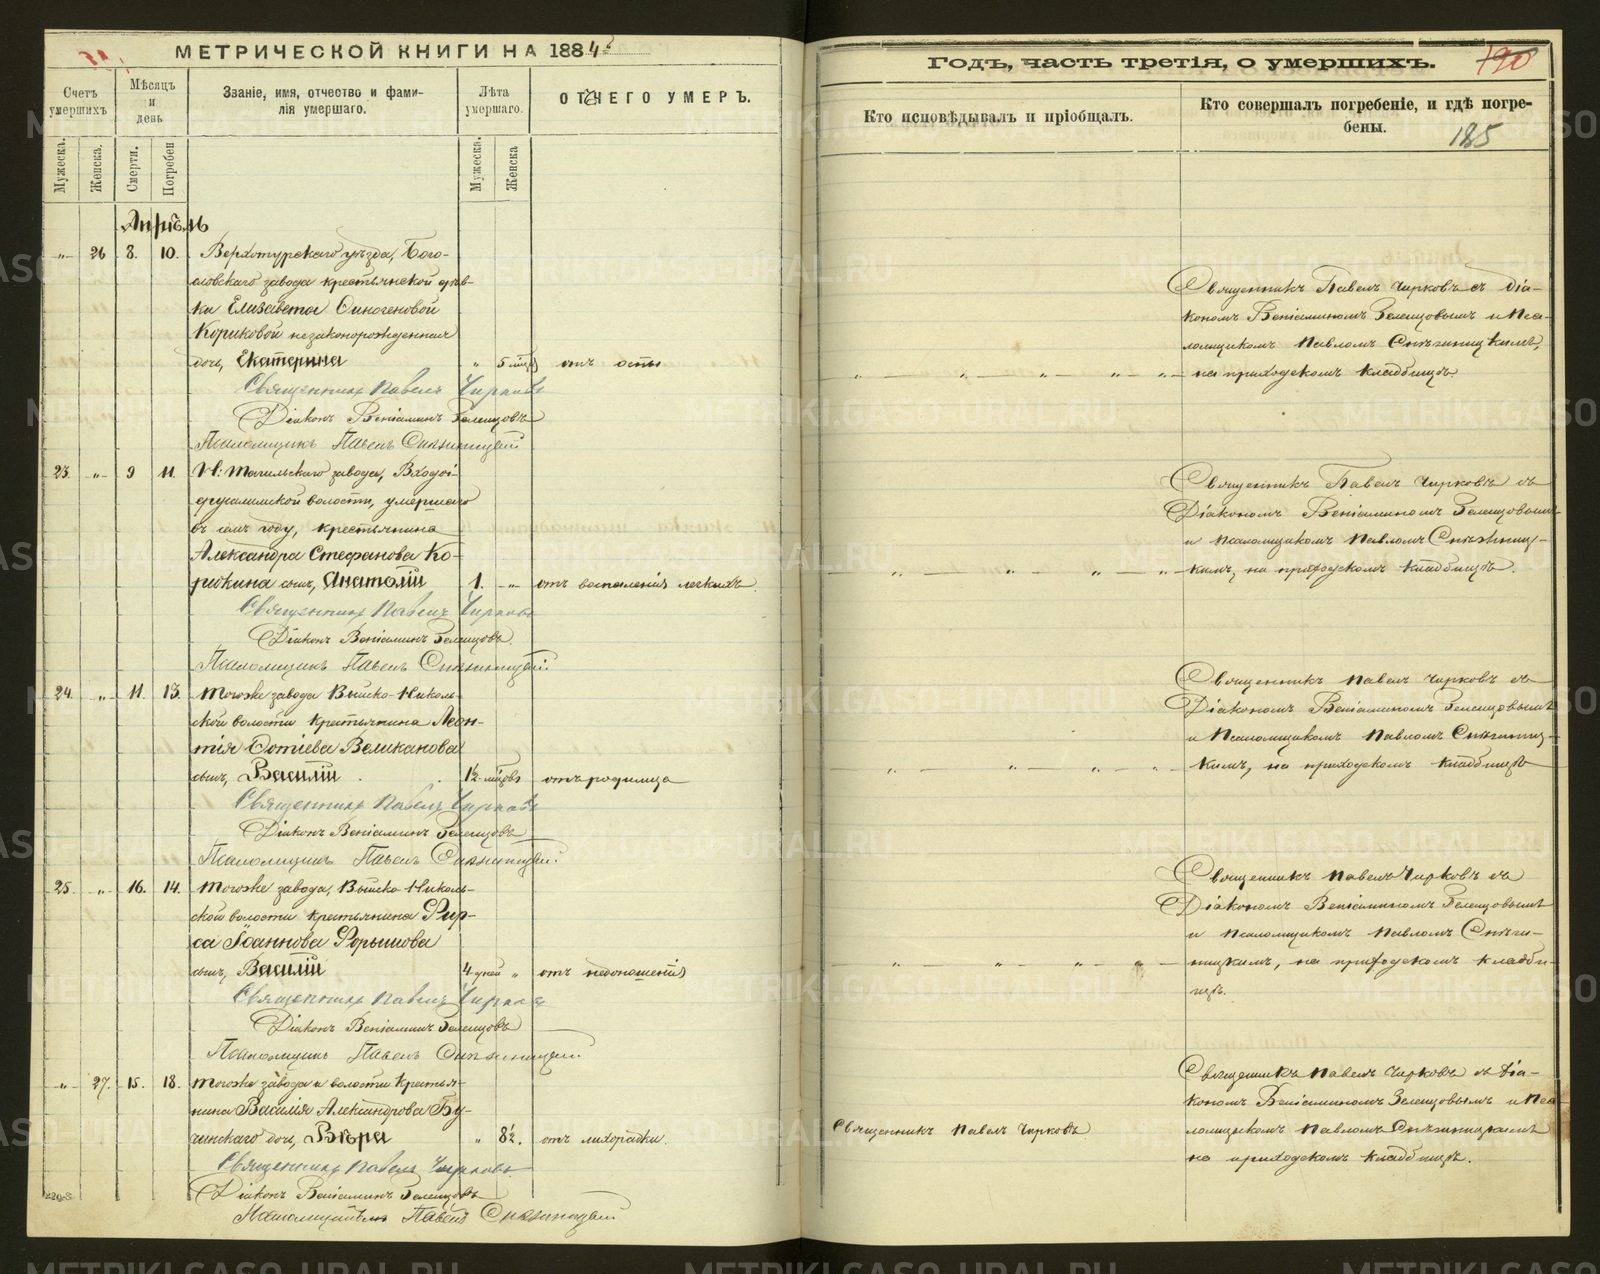 МЕТРИЧЕСКОЙ КНИГИ НА 1884
Счетъ умершихъ
Мужеска.
Женска.
Мѣсяцъ и день
Смерти.
Погребен
Званіе, имя, отчество и фами-
лія умершаго.
Лѣта умершаго.
Мужеска.
Женска
ОТЧЕГО УМЕРЪ.
Апрѣль
„ 26 8. 10. Верхотурскаго уѣзда, Бого-
словскаго завода крестьянской дѣв-
ки Елизаветы Финогеновой
Кориковой незаконорожденная
дочь, Екатерина „ 5 мѣс отъ оспы
Священникъ Павелъ Чирковъ
Діаконъ Веніаминъ
Псаломщикъ Павелъ
23 „ 9 11. Н: Тагильскаго завода, Входо-
іерусалимской волости, умершаго
въ семъ году, крестьянина
Александра Стефанова Ко-
рюкина сынъ, Анатолій 1. „ отъ воспаленія легкихъ.
Священникъ Павелъ Чирковъ
Діаконъ Веніаминъ
Псаломщикъ Павелъ
24. „ 11. 13. Тогоже завода Выйско-Николь-
ской волости крестьянина Леон-
тія Фотіева Великанова
сынъ, Василій 1½ мѣсцовъ отъ родимца
Священникъ Павелъ Чирковъ
Діаконъ Веніаминъ
Псаломщикъ Павелъ
25. „ 16. 14. Тогоже завода, Выйско-Николь-
ской волости крестьянина Фир-
са Іоаннова
сынъ, Василій 4 дней „ отъ недоношенія
Священникъ Павелъ Чирковъ
Діаконъ Веніаминъ
Псаломщикъ Павелъ
„ 27. 15. 18. Тогоже завода и волости крестья-
нина Василія Александрова Бу-
чинскаго дочь, Вѣра „ 8½. отъ лихорадки.
Священникъ Павелъ Чирковъ
Діаконъ Веніаминъ
Павелъ
Годъ, часть третія, о умершихъ.
190
Кто исповѣдывалъ и пріобщалъ.
Кто совершалъ погребеніе, и гдѣ погре-
бены.
185
Священникъ Павелъ Чирковъ съ Діа-
кономъ Веніаминомъ и Пса-
ломщикомъ Павломъ
на приходскомъ кладбищѣ.
Священникъ Павелъ Чирковъ съ
Діакономъ Веніаминомъ
и Псаломщикомъ Павломъ
кимъ, на приходскомъ кладбищѣ.
Священникъ Павелъ Чирковъ съ
Діакономъ Веніаминомъ
и Псаломщикомъ Павломъ
кимъ, на приходскомъ кладбищѣ
Священникъ Павелъ Чирковъ съ
Діакономъ Веніаминомъ
и Псаломщикомъ Павломъ
ницкимъ, на приходскомъ кладби-
щѣ.
Священникъ Павелъ Чирковъ
Священникъ Павелъ Чирковъ съ Діа-
кономъ Веніаминомъ и Пса-
ломщикомъ Павломъ
на приходскомъ кладбищѣ.
METRIKI.GASO-URAL.RU